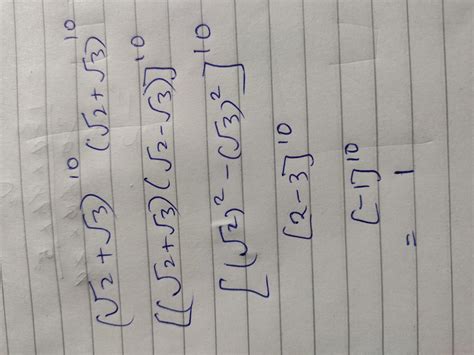 (√2+√3)^10 (√2+√3)^10
[(√2+√3)(√2-√3)]^10
[(√2)^2-(√3)^2]^10
[2-3]^10
[-1]^10
= 1